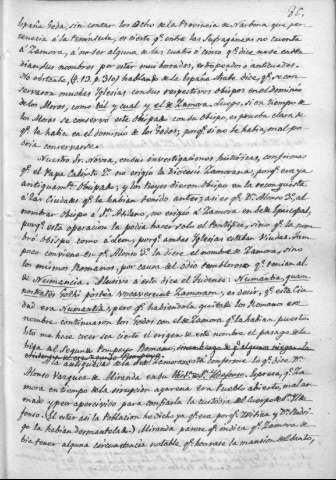 86.
España Goda, sin contar los Ocho de la Provincia de Narbona que per-
tenecia á la Península, es cierto q.e entre las Sufraganeas no cuenta
á Zamora, á no ser alguna de las cuatro ó cinco q.e dice no se enten-
dian sus nombres por muy borrados, estropeados ó anticuados.
No obstante, (t. 13. p. 310) hablando de la España Arabe dice, q.e se con-
servaron muchas Iglesias con sus respectivos Obispos en el dominio
de los Moros, como tal y cual y el de Zamora. Luego, si en tiempo de
los Moros se conservó este Obispado con su Obispo, es prueba clara de
q.e la habia en el dominio de los Godos, porq.e si no le habia, mal po-
dria conservarse.
Nuestro Sr. Novoa, en sus investigaciones históricas, confirma
q.e el Papa Calixto 2.o no erigió la Diocesis Zamorana, porq.e era ya
antiguam.te Obispado; y los Reyes dieron Obispo en la reconquista
á las Ciudades q.e le habian tenido anteriores: q.e D.n Alonso 3.o, al
nombrar Obispo á S.n Atilano, no erigió á Zamora en Sede Episcopal,
porq.e esta operacion la podia hacer solo el Pontifice, sino q.e la nom-
bró Obispo como á Leon, porq.e ambas Iglesias estaban Viudas. Tam-
poco conviene en q.e Alonso 3.o la diese el nombre de Zamora, sino
los mismos Romanos, por causa del odio tan que tenian al
de Numancia. Alusivo á esto dice el Tudense: Numantia, quam
Gothi postea vocaverunt Zamoram; es decir, q.e esta Ciu-
dad era Numantia, pero q.e habiendola quitado los Romanos ese
nombre continuaron los Godos con el de Zamora q.e la habian puesto.
Esto me hace creer sea cierto el origen de este nombre el parage de la
viga el Segundo Pompeyo Romano,
La antiguedad de la Sede Zamorana está conforme lo q.e dice D.n
Alonso Vazquez de Miranda en su Hist.a de S.n Ildefonso. Ignora, q.e Za-
mora en tiempo de la irrupcion agarena era Pueblo abierto, mal ar-
mado y poco apercibido para confiarle la custodia del cuerpo de S.n Ilde-
fonso. (El estar asi la Poblacion he dicho ya q.e era porq.e Witiza y D.n Rodri-
go la habian desmantelado.) Miranda parece q.e indica q.e Zamora de-
bia tener alguna circunstancia notable q.e honrase la mansion del Santo,